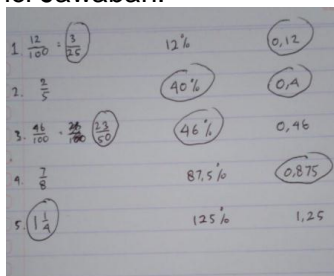 1. 12/100 = 3/25 12% 0,12
2. 2/5 40% 0,4
3. 46/100 = 23/50 46% 0,46
4. 7/8 87,5% 0,875
5. 1 1/4 125% 1,25